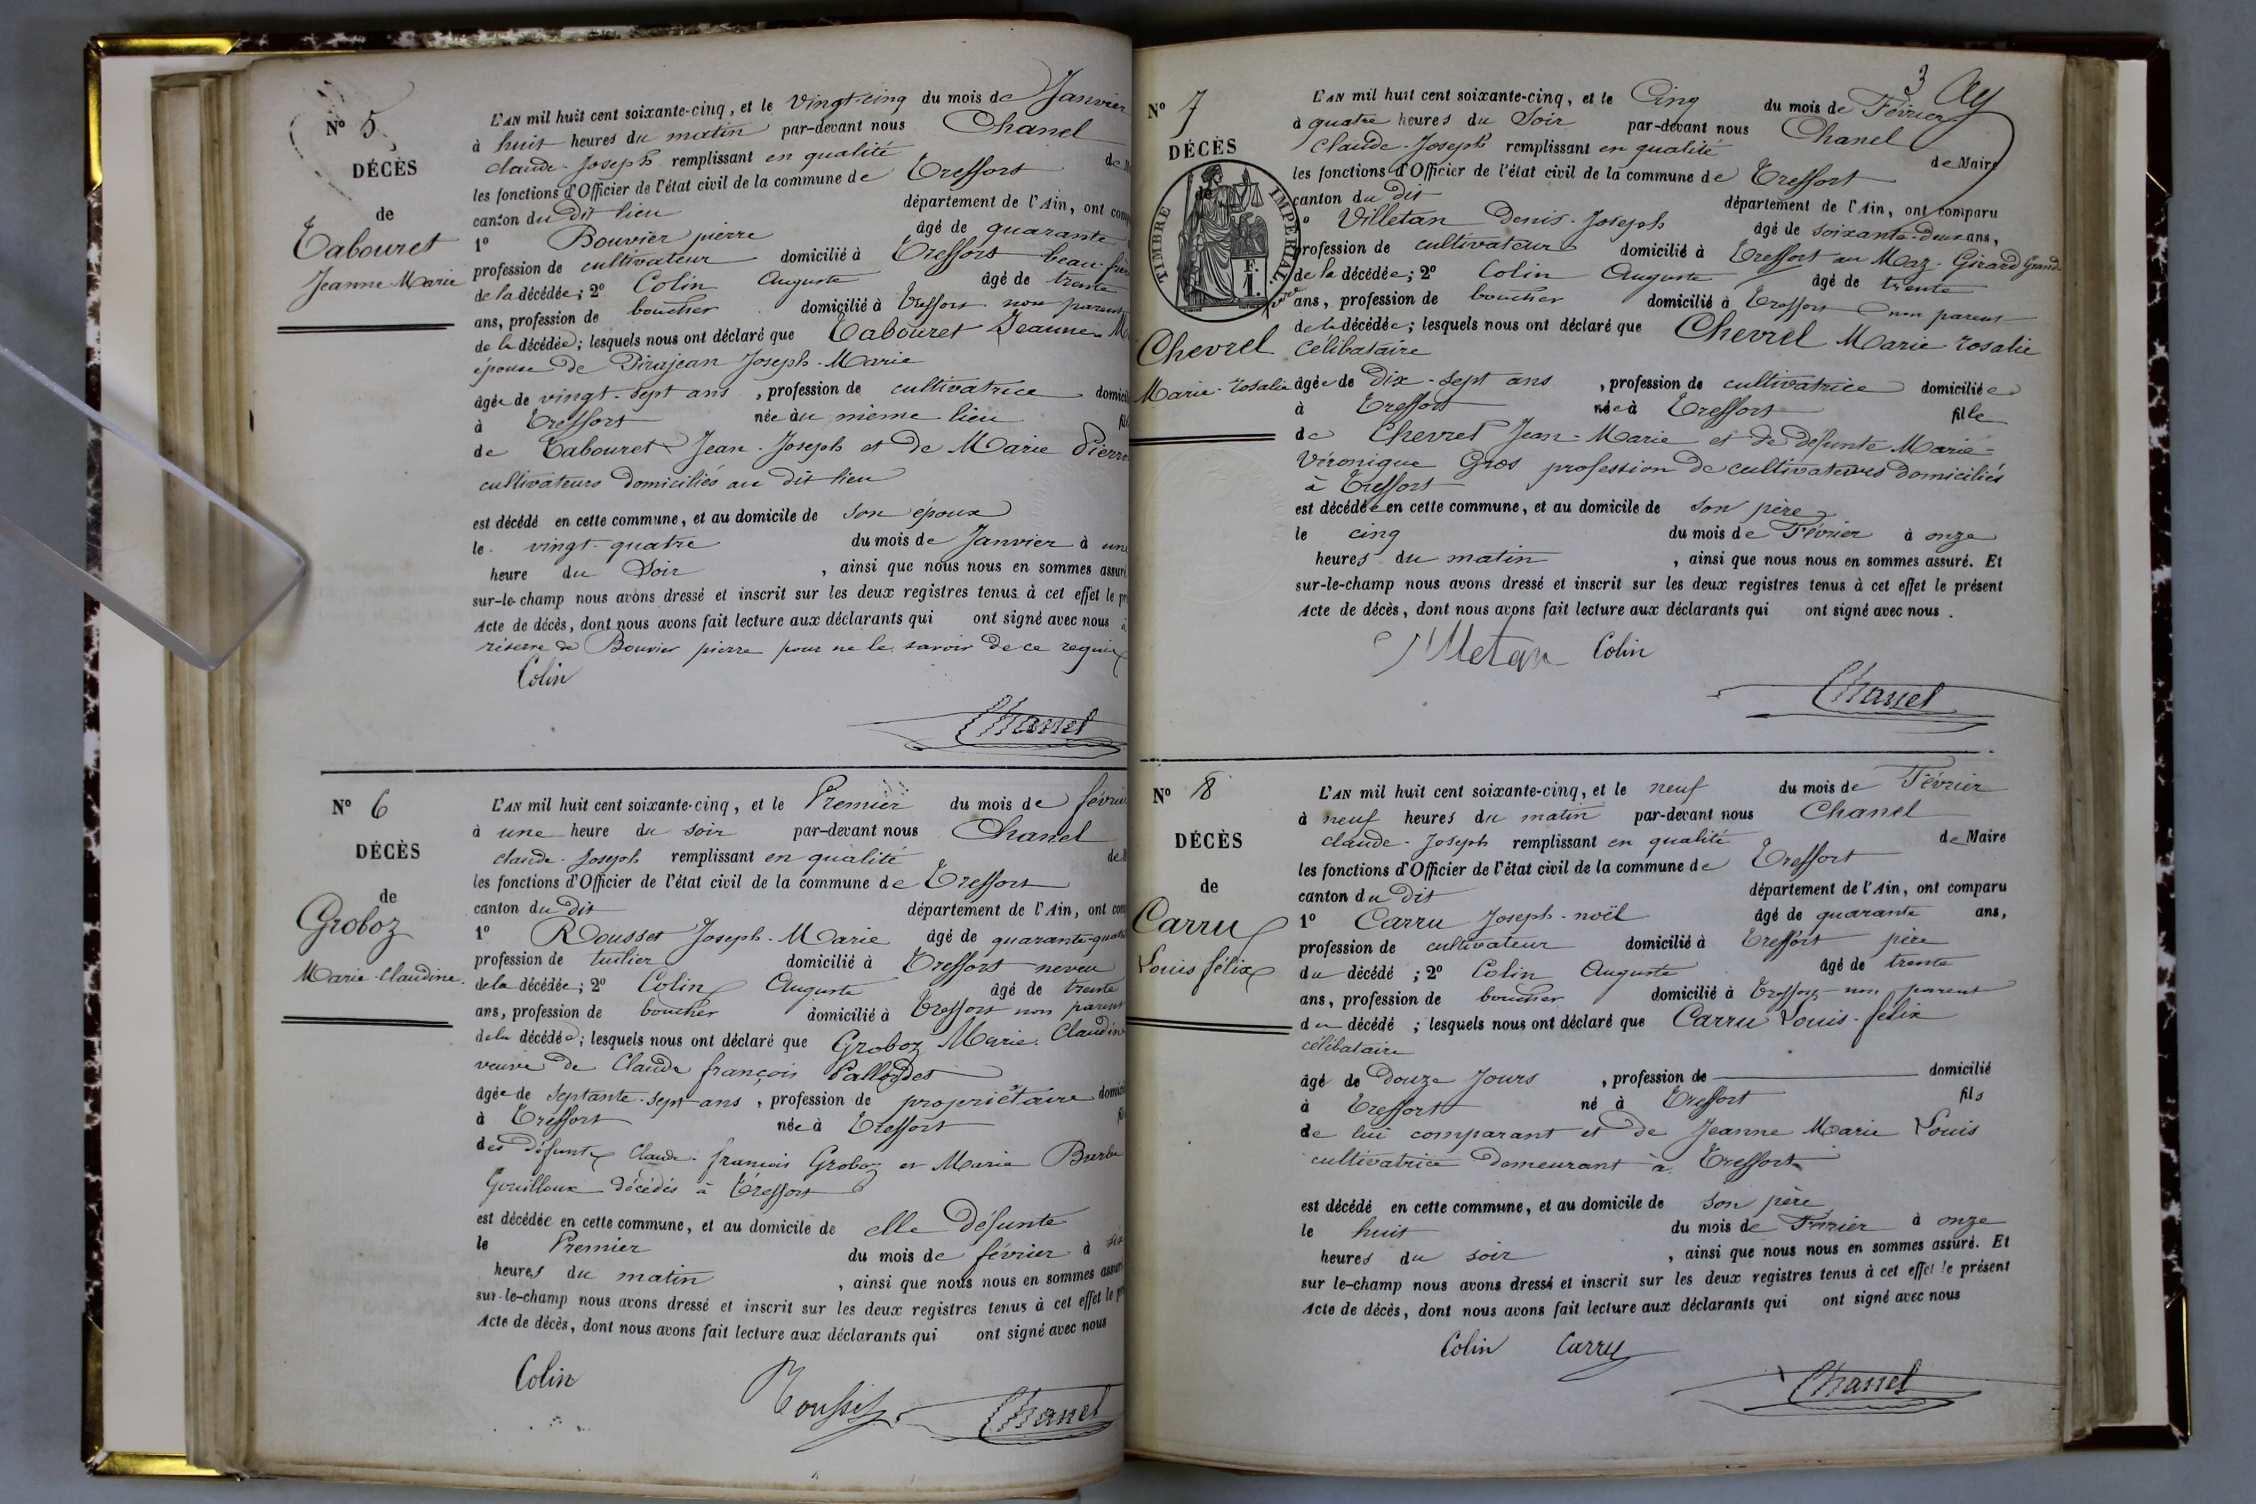 N° 5
DÉCÈS
de
Tabouret
Jeanne Marie
L'AN mil huit cent soixante-cinq, et le vingt-cinq du mois de Janvier
à huit heures du matin par-devant nous Chanel
claude-Joseph remplissant en qualité de
les fonctions d'Officier de l'état civil de la commune de Treffort
canton du dit lieu département de l'Ain, ont
1° Bouvier pierre âgé de quarante
profession de cultivateur domicilié à Treffort beau-
de la décédée; 2° Colin Auguste âgé de trente
ans, profession de boucher domicilié à Treffort non parent
de la décédée; lesquels nous ont déclaré que Tabouret Jeanne-
épouse de Pirajean Joseph-Marie
âgée de vingt-sept ans, profession de cultivatrice
à Treffort née au même lieu
de Tabouret Jean-Joseph et de Marie
cultivateurs domiciliés au dit lieu
est décédé en cette commune, et au domicile de son époux
le vingt-quatre du mois de Janvier à une
heure du Soir, ainsi que nous nous en sommes assuré
sur-le-champ nous avons dressé et inscrit sur les deux registres tenus à cet effet le
Acte de décès, dont nous avons fait lecture aux déclarants qui ont signé avec nous à
réserve de Bouvier pierre pour ne le savoir de ce requis
Colin
Chanel
N° 6
DÉCÈS
de
Groboz
Marie-Claudine
L'AN mil huit cent soixante-cinq, et le Premier du mois de
à une heure du soir par-devant nous Chanel
claude-Joseph remplissant en qualité de
les fonctions d'Officier de l'état civil de la commune de Treffort
canton du dit département de l'Ain, ont
1° Rousset Joseph-Marie âgé de quarante-
profession de tuilier domicilié à Treffort neveu
de la décédée; 2° Colin Auguste âgé de trente
ans, profession de boucher domicilié à Treffort non parent
de la décédée; lesquels nous ont déclaré que Groboz Marie
veuve de Claude françois
âgée de septante-sept ans, profession de propriétaire
à Treffort née à Treffort
des défunts Claude-françois Groboz et Marie
Gouilloux décédés à Treffort
est décédée en cette commune, et au domicile de elle défunte
le Premier du mois de février à
heures du matin, ainsi que nous nous en sommes
sur-le-champ nous avons dressé et inscrit sur les deux registres tenus à cet effet le
Acte de décès, dont nous avons fait lecture aux déclarants qui ont signé avec nous
Colin
Chanel
3
N° 7
DÉCÈS
TIMBRE IMPÉRIAL
F.
1.
Chevrel
Marie-rosalie
L'AN mil huit cent soixante-cinq, et le Cinq du mois de Février
à quatre heures du Soir par-devant nous Chanel
Claude-Joseph remplissant en qualité de Maire
les fonctions d'Officier de l'état civil de la commune de Treffort
canton du dit département de l'Ain, ont comparu
Villetan Denis-Joseph âgé de soixante-deux ans,
profession de cultivateur domicilié à Treffort au Maz-Girard Grand
de la décédée; 2° Colin Auguste âgé de trente
ans, profession de boucher domicilié à Treffort non parent
de la décédée; lesquels nous ont déclaré que Chevrel Marie rosalie
Célibataire
âgée de Dix-sept ans, profession de cultivatrice domiciliée
à Treffort née à Treffort fille
de Chevrel Jean-Marie et de défunte Marie-
Véronique Gros profession de cultivateurs domiciliés
à Treffort
est décédée en cette commune, et au domicile de son père
le cinq du mois de Février à onze
heures du matin, ainsi que nous nous en sommes assuré. Et
sur-le-champ nous avons dressé et inscrit sur les deux registres tenus à cet effet le présent
Acte de décès, dont nous avons fait lecture aux déclarants qui ont signé avec nous.
Colin
Chanel
N° 8
DÉCÈS
de
Carru
Louis félix
L'AN mil huit cent soixante-cinq, et le neuf du mois de Février
à neuf heures du matin par-devant nous Chanel
claude-Joseph remplissant en qualité de Maire
les fonctions d'Officier de l'état civil de la commune de Treffort
canton du dit département de l'Ain, ont comparu
1° Carru Joseph-noël âgé de quarante ans,
profession de cultivateur domicilié à Treffort père
du décédé; 2° Colin Auguste âgé de trente
ans, profession de boucher domicilié à Treffort non parent
du décédé; lesquels nous ont déclaré que Carru Louis-félix
célibataire
âgé de Douze Jours, profession de domicilié
à Treffort né à Treffort fils
de lui comparant et de Jeanne Marie Louis
cultivatrice demeurant à Treffort
est décédé en cette commune, et au domicile de son père
le huit du mois de Février à onze
heures du soir, ainsi que nous nous en sommes assuré. Et
sur le-champ nous avons dressé et inscrit sur les deux registres tenus à cet effet le présent
Acte de décès, dont nous avons fait lecture aux déclarants qui ont signé avec nous
Colin Carru
Chanel